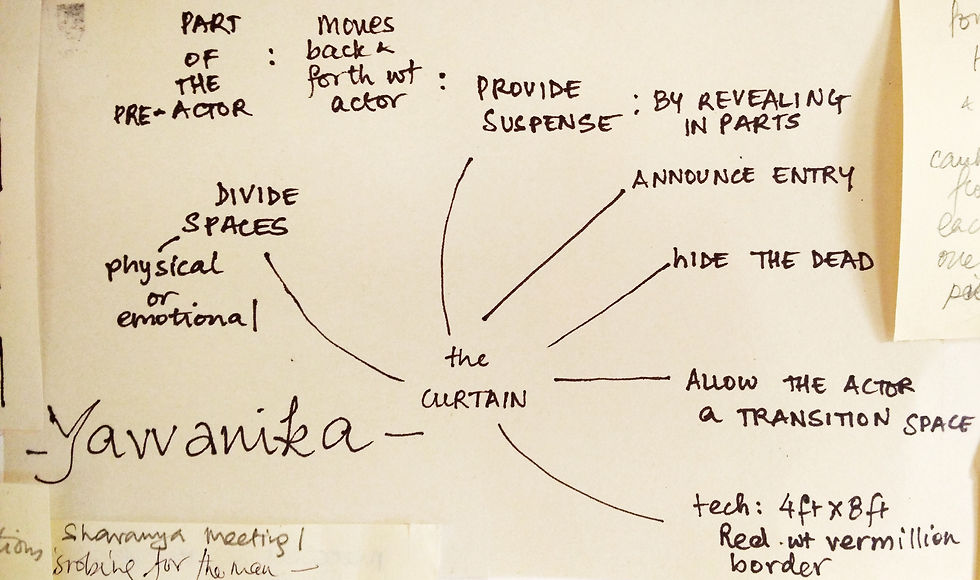 PART
OF
THE
PRE-ACTOR
:
moves
back &
forth wt
actor
:
PROVIDE
SUSPENSE
: BY REVEALING
IN PARTS
ANNOUNCE ENTRY
DIVIDE
SPACES
physical
or
emotional
HIDE THE DEAD
the
CURTAIN
ALLOW THE ACTOR
a TRANSITION SPACE
- Yavvanika -
tech: 4ft x 8ft
Red wt vermillion
border
Sharanya meeting
for the man -
for
each
one